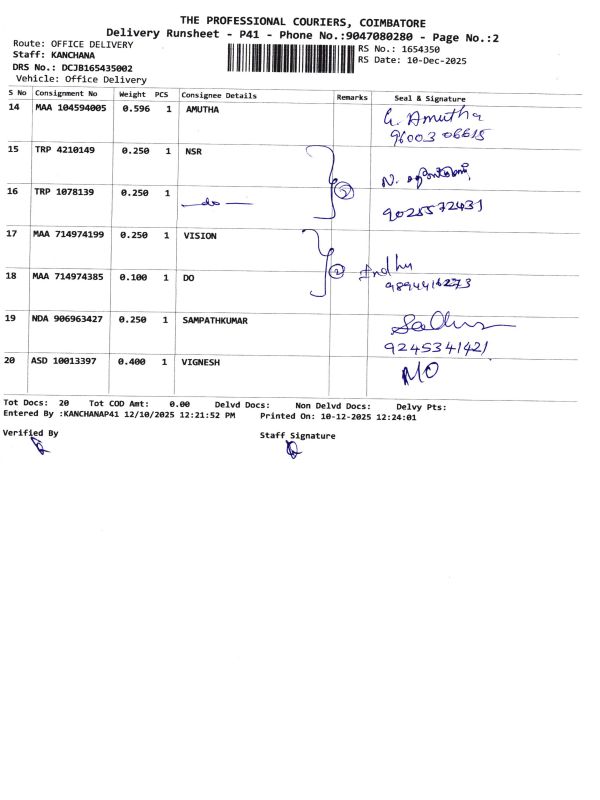 THE PROFESSIONAL COURIERS, COIMBATORE
Delivery Runsheet - P41 - Phone No.:9047080280 - Page No.:2
Route: OFFICE DELIVERY
RS No.: 1654350
Staff: KANCHANA
RS Date: 10-Dec-2025
DRS No.: DCJB165435002
Vehicle: Office Delivery
S No Consignment No Weight PCS Consignee Details Remarks Seal & Signature
14 MAA 104594005 0.596 1 AMUTHA G. Amutha
96003 06615
15 TRP 4210149 0.250 1 NSR
N.
16 TRP 1078139 0.250 1 —do— 2
9025572431
17 MAA 714974199 0.250 1 VISION
2 Indhu
18 MAA 714974385 0.100 1 DO 9894416273
19 NDA 906963427 0.250 1 SAMPATHKUMAR
9245341421
20 ASD 10013397 0.400 1 VIGNESH MO
Tot Docs: 20 Tot COD Amt: 0.00 Delvd Docs: Non Delvd Docs: Delvy Pts:
Entered By :KANCHANAP41 12/10/2025 12:21:52 PM Printed On: 10-12-2025 12:24:01
Verified By Staff Signature